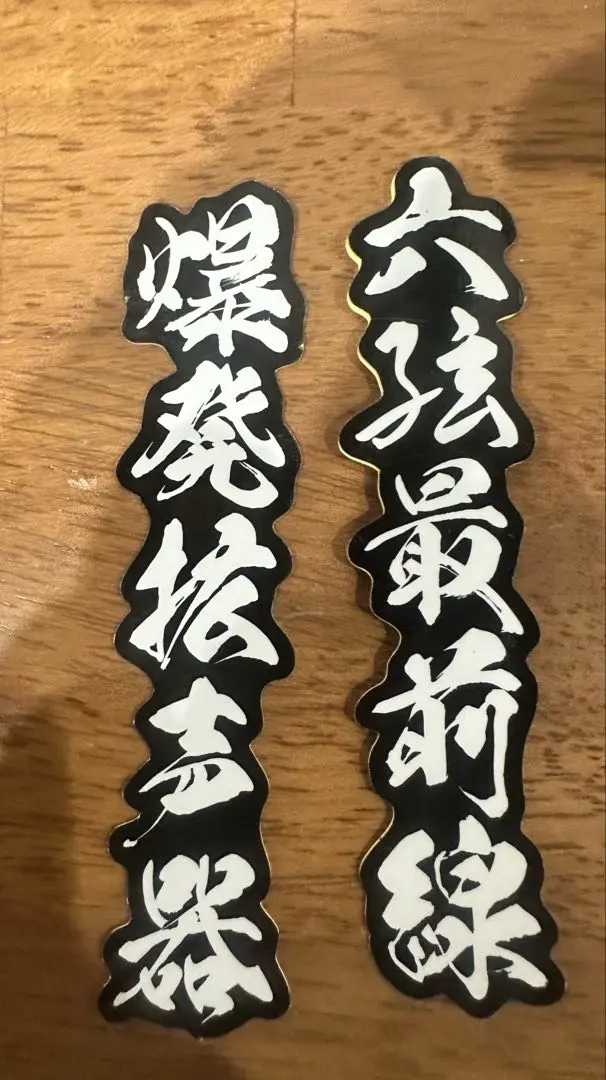 六弦最前線
爆発拡声器